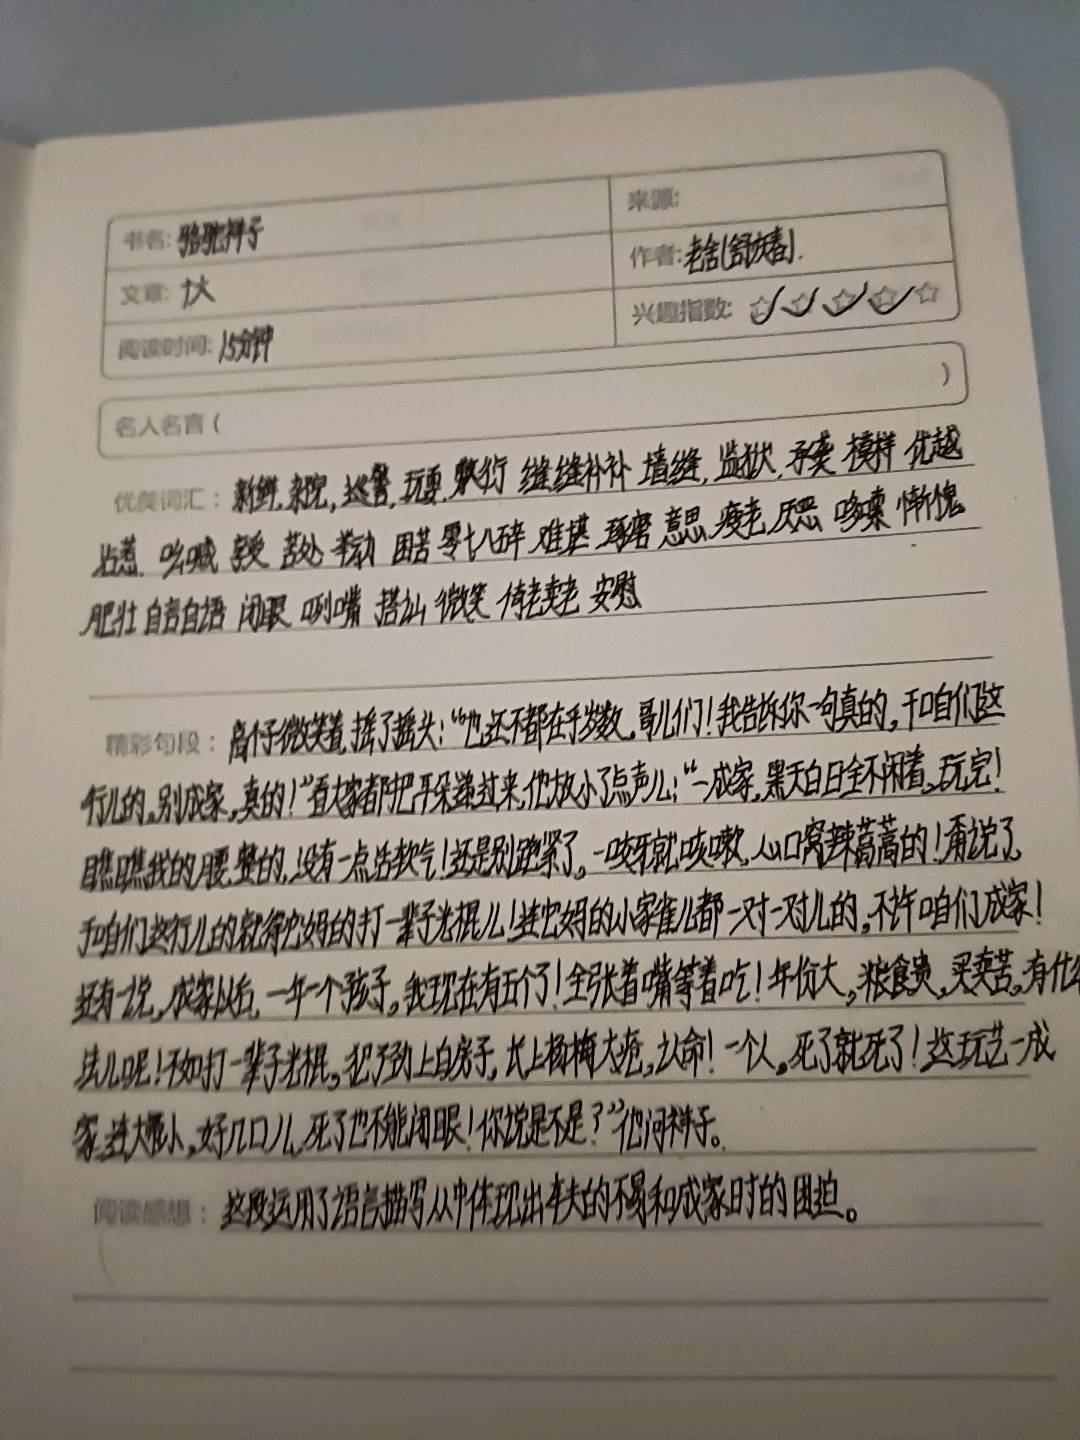 书名: 骆驼祥子
来源:
文章: 十六
作者: 老舍(舒庆春).
阅读时间: 15分钟
兴趣指数: ☆☆☆☆☆
名人名言 ( )
优美词汇: 新鲜.杂院,巡警,玩耍.敷衍 缝缝补补 墙缝,监狱,承受 模样 优越
沾惹. 吆喊 享受 苦处 举动 困苦 零七八碎 难堪 琢磨 意思.疲老.厌恶 哆嗦 惭愧
肥壮 自言自语 闭眼 咧嘴 搭讪 微笑 倚老卖老 安慰
精彩句段: 高个子微笑着,摇了摇头:“也还不都在乎岁数,哥儿们!我告诉你一句真的,干咱们这
行儿的,别成家,真的!”看大家都把耳朵递过来,他放小了点声儿:“一成家,黑天白日全不闲着,玩完!
瞧瞧我的腰,整的,没有一点活软气!还是别跑紧了,一咬牙就咳嗽,心口窝辣蒿蒿的!甭说了,
干咱们这行儿的就得它妈的打一辈子光棍儿!连它妈的小家雀儿都一对一对儿的,不许咱们成家!
还有一说,成家以后,一年一个孩子,我现在有五个了!全张着嘴等着吃!年份大,粮食贵,买卖苦,有什么
法儿呢!不如打一辈子光棍,犯了劲上白房子,长上杨梅大疮,认命!一个人,死了就死了!这玩艺一成
家,连大带小,好几口儿,死了也不能闭眼!你说是不是?”他问祥子。
阅读感想: 这段运用了语言描写从中体现出车夫的不易和成家时的困迫。